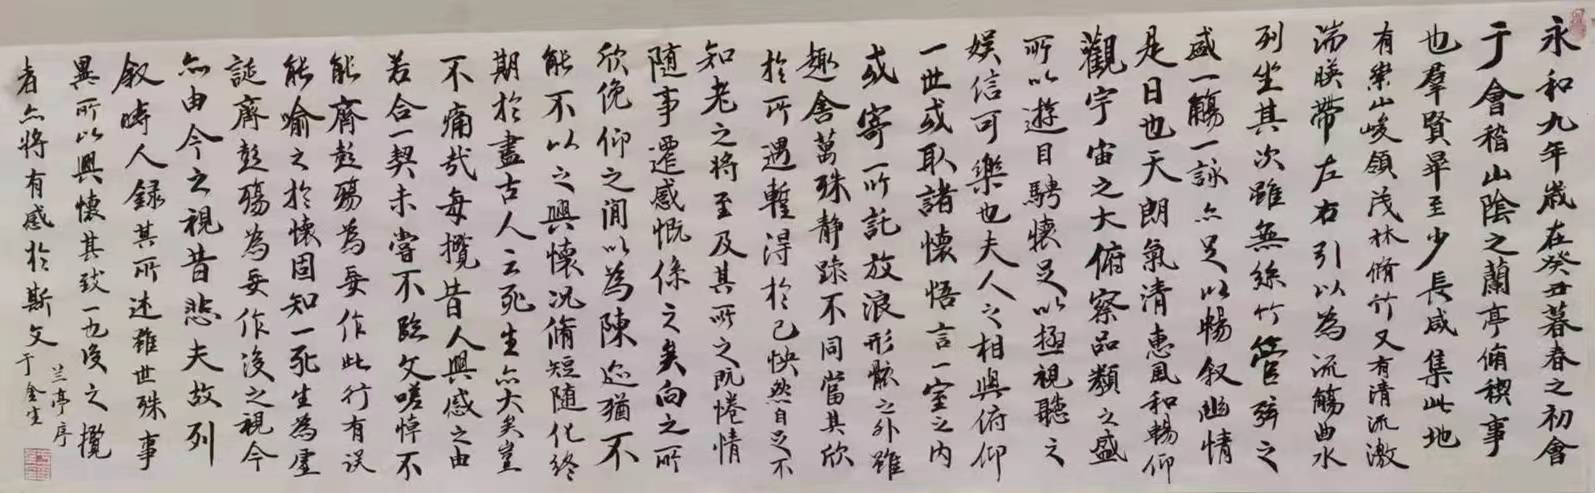 永和九年歲在癸丑暮春之初會
于會稽山陰之蘭亭脩稧事
也羣賢畢至少長咸集此地
有崇山峻領茂林脩竹又有清流激
湍暎帶左右引以為流觴曲水
列坐其次雖無絲竹管弦之
盛一觴一詠亦足以暢叙幽情
是日也天朗氣清惠風和暢仰
觀宇宙之大俯察品類之盛
所以遊目騁懷足以極視聽之
娛信可樂也夫人之相與俯仰
一世或取諸懷悟言一室之内
或寄一所託放浪形骸之外雖
趣舍萬殊静躁不同當其欣
於所遇暫得於己怏然自足不
知老之將至及其所之既惓情
随事遷感慨係之矣向之所
欣俛仰之閒以為陳迹猶不
能不以之興懷况脩短随化終
期於盡古人云死生亦大矣豈
不痛哉每攬昔人興感之由
若合一契未嘗不臨文嗟悼不
能齊彭殤為妄作此行有误
能喻之於懷固知一死生為虛
誕齊彭殤為妄作後之視今
亦由今之視昔悲夫故列
叙時人録其所述雖世殊事
異所以興懷其致一也後之攬
者亦將有感於斯文
兰亭序
于金生